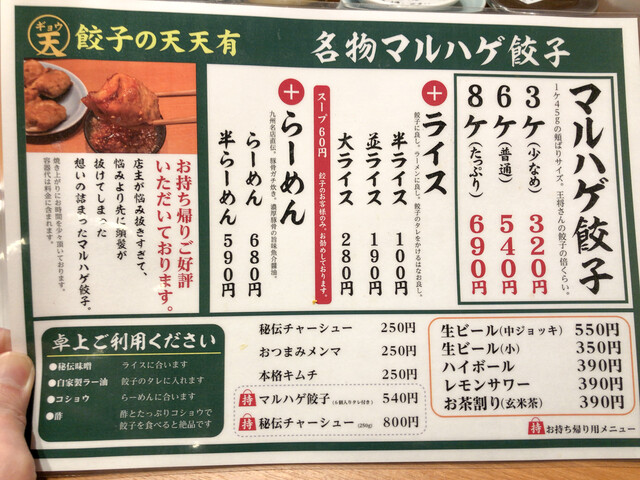 ギョウ
天
餃子の天天有
名物マルハゲ餃子
マルハゲ餃子
1ケ45gの頬ばりサイズ。王将さんの餃子の倍くらい。
3ケ(少なめ) 320円
6ケ(普通) 540円
8ケ(たっぷり) 690円
+ライス
餃子に良し。ラーメンに良し。餃子のタレをかけるはなお良し。
半ライス 100円
並ライス 190円
大ライス 280円
スープ60円 餃子のお客様のみ。お勧めしております。
+らーめん
九州名店直伝。豚骨ガチ炊き。濃厚豚骨の旨味魚介醤油。
らーめん 680円
半らーめん 590円
お持ち帰りご好評
いただいております。
店主が悩み抜きすぎて、
悩みより先に頭髪が
抜けてしまった
想いの詰まったマルハゲ餃子。
焼き上がりにお時間を少々頂いております。
容器代は料金に含まれます。
卓上ご利用ください
●秘伝味噌 ライスに合います
●自家製ラー油 餃子のタレに入れます
●コショウ らーめんに合います
●酢 酢とたっぷりコショウで
餃子を食べると絶品です
秘伝チャーシュー 250円
おつまみメンマ 250円
本格キムチ 250円
持 マルハゲ餃子(6個入りタレ付き) 540円
持 秘伝チャーシュー(250g) 800円
生ビール(中ジョッキ) 550円
生ビール(小) 350円
ハイボール 390円
レモンサワー 390円
お茶割り(玄米茶) 390円
持 お持ち帰り用メニュー